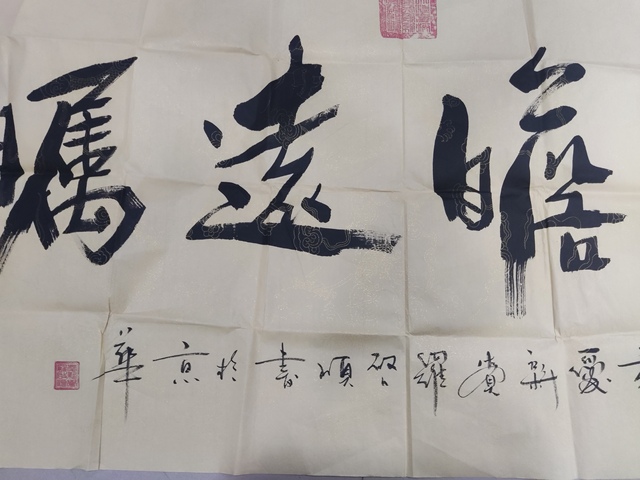 瞻遠矚
愛新覺羅啟頌書於京華